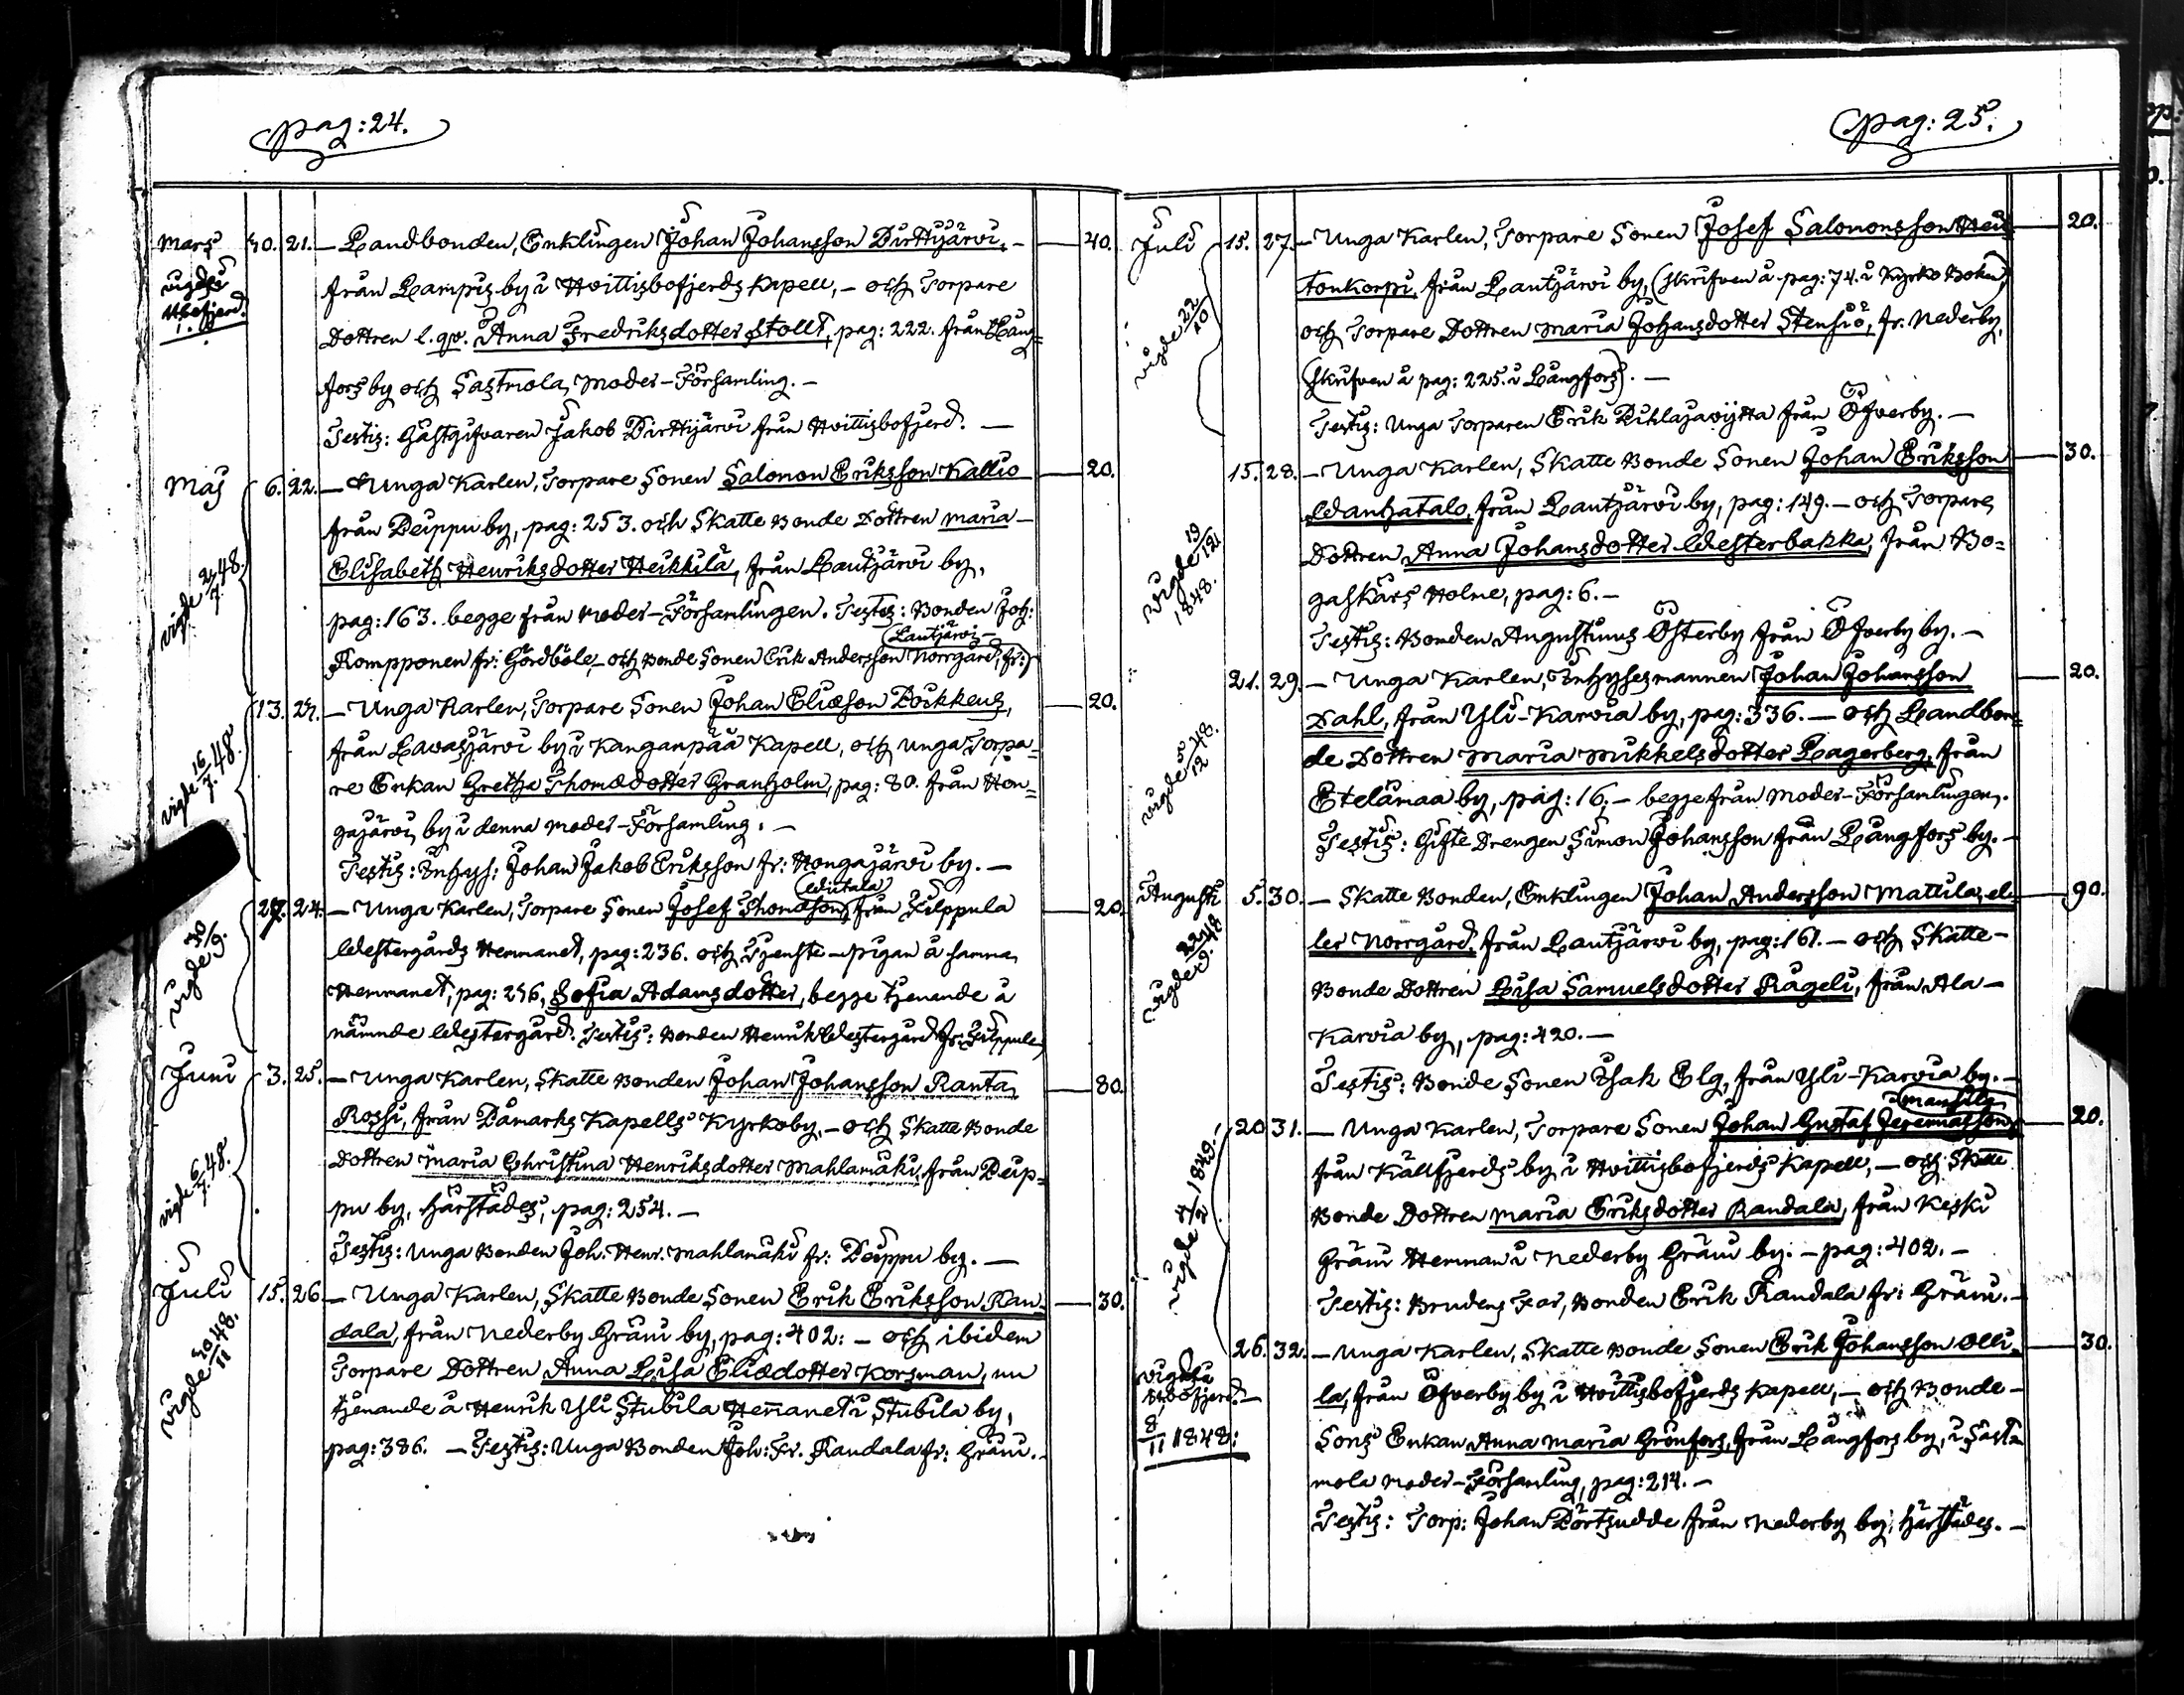 pag: 24.
Mars 30. 21. — Landbonden, Enklingen Johan Johansson Pirttijärvi, — 40.
vigde i
Hbofjerd.
från Lampis by i Hvittisbofjerds Kapell, — och Torpare
Dottren l. qv. Anna Fredriksdotter Stolt, pag: 222. från Lång=
fors by och Sastmola Moder-Församling. —
Testis: Gästgifvaren Jakob Pirttijärvi från Hvittisbofjerd. —
Maj 6. 22. — Unga Karlen, Torpare Sonen Salomon Eriksson Kallio — 20.
från Peippu by, pag: 253. och Skatte Bonde Dottren Maria
Elisabeth Henriksdotter Heikkilä, från Lautjärvi by,
vigde 2/7. 48.
pag: 163. begge från Moder-Församlingen. Testes: Bonden Joh:
Kompponen fr: Gördböle, — och Bonde Sonen Erik Andersson Norrgård, fr:
Lautjärvi —
13. 23. — Unga Karlen, Torpare Sonen Johan Eliæson Poikkeus, — 20.
från Lavasjärvi by i Kanganpää Kapell, och unga Torpa=
vigde 16/7. 48.
re Enkan Gretha Thomædotter Granholm, pag: 80. från Hon=
gajärvi by i denna Moder-Församling. —
Testis: Inhys: Johan Jakob Eriksson fr: Hongajärvi by. —
27. 24. — Unga Karlen, Torpare Sonen Josef Thomasson, från Filppula — 20.
vigde 30/9.
Westergårds Hemmanet, pag: 236. och Tjenste-pigan å samma
Hemmanet, pag: 236, Sofia Adamsdotter, begge tjenande å
nämnde Westergård. Testis: Bonden Henrik Westergård fr: Filppula
Juni 3. 25. — Unga Karlen, Skatte Bonden Johan Johansson Ranta — 80.
Rossi, från Påmarks Kapells Kyrkoby, — och Skatte Bonde
Dottren Maria Christina Henriksdotter Mahlamäki, från Peip=
vigde 6/7. 48.
pu by, härstädes, pag: 254. —
Testis: Unga Bonden Joh. Henr. Mahlamäki fr: Peippu by. —
Juli 15. 26. — Unga Karlen, Skatte Bonde Sonen Erik Eriksson Ran= — 30.
dala, från Nederby Gräni by, pag: 402: — och ibidem
Torpare Dottren Anna Lisa Eliædotter Korsman, nu
tjenande å Henrik Yli Stubila Hemanet i Stubila by,
pag: 386. — Testis: Unga Bonden Joh: Fr. Randala fr: Gräni. —
pag: 25.
Juli 15. 27. — Unga Karlen, Torpare Sonen Josef Salomonsson Hei — 20.
tonkorpi, från Lautjärvi by, (skrifven å pag: 74. i Kyrko Boken)
vigde 22/10
och Torpare Dottren Maria Johansdotter Stensiö, fr. Nederby,
(skrifven å pag: 225. i Långfors). —
Testis: Unga Torparen Erik Pihlajavijtta från Öfverby. —
15. 28. — Unga Karlen, Skatte Bonde Sonen Johan Eriksson — 30.
Wanhatalo, från Lautjärvi by, pag: 149. — och Torpare
Dottren Anna Johansdotter Westerbakka, från Bo=
vigde 19/12 1848.
gaskärs Holme, pag: 6. —
Testis: Bonden Augustinus Österby från Öfverby by. —
21. 29. — Unga Karlen, Inhysesmannen Johan Johansson — 20.
Dahl, från Yli-Karvia by, pag: 336. — och Landbon=
de Dottren Maria Mikkelsdotter Lagerberg, från
Etelämaa by, pag: 16. — begge från Moder-Församlingen.
Testis: Gifte Drengen Simon Johansson från Långfors by. —
Augusti 5. 30. — Skatte Bonden, Enklingen Johan Andersson Mattila, el= — 90.
ler Norrgård, från Lautjärvi by, pag: 161. — och Skatte —
Bonde Dottren Lisa Samuelsdotter Rageli, från Ala —
Karvia by, pag: 420. —
Testis: Bonde Sonen Isak Elg, från Yli-Karvia by. —
20 31. — Unga Karlen, Torpare Sonen Johan Gustaf Jeremiasson — 20.
från Källfjerds by i Hvittisbofjerds Kapell, — och Skatte
Bonde Dottren Maria Eriksdotter Randala, från Keski
Gräni Hemman i Nederby Gräni by. — pag: 402. —
Testis: Brudens Far, Bonden Erik Randala fr: Gräni. —
26. 32. — Unga Karlen, Skatte Bonde Sonen Erik Johansson Olli= — 30.
la, från Öfverby by i Hvittisbofjerds Kapell, — och Bonde —
8/11 1848:
Sons Enkan Anna Maria Grönfors, från Långfors by, i Sast=
mola Moder-Församling, pag: 214. —
Testis: Torp: Johan Pörtsudde från Nederby by, härstädes. —